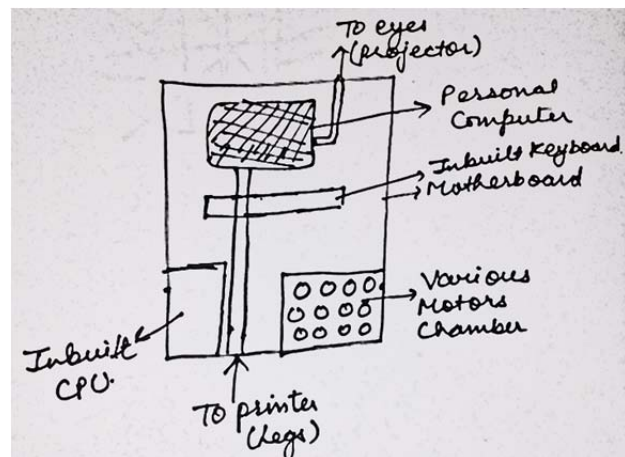 To eyes
(projector)
Personal
Computer
Inbuilt Keyboard.
Motherboard
Various
Motors
Chamber
Inbuilt
CPU.
To printer
(legs)